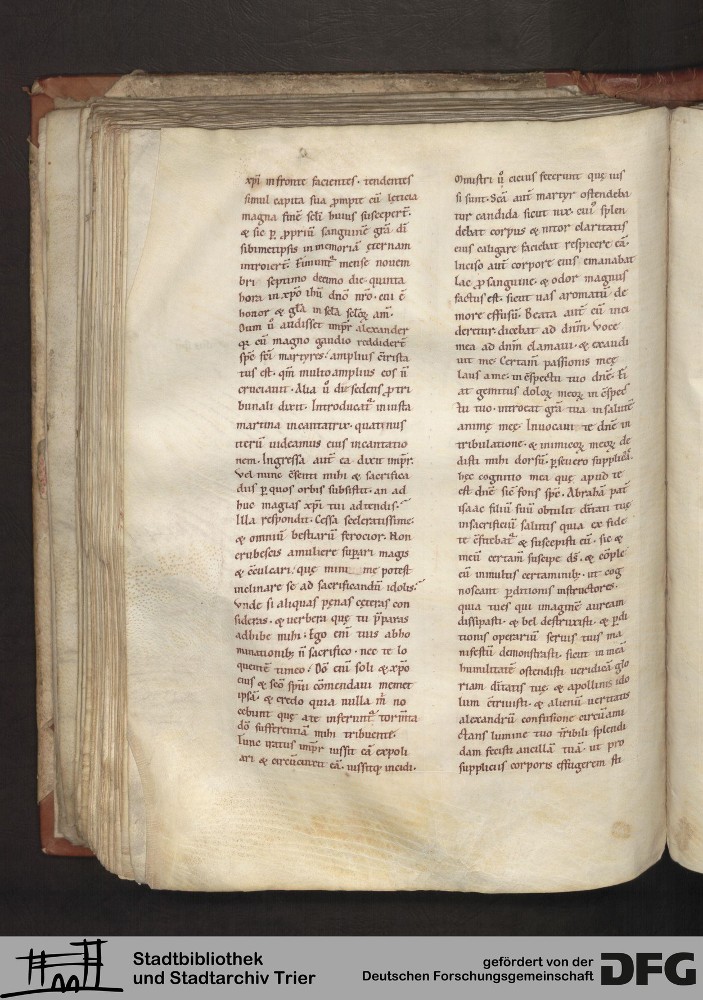 xpi in fronte facientes. tendentes
simul capita sua ꝓmpit cū leticia
magna finē scīi huius susceper̄t.
& sic ꝑ ꝓpriū sanguinē grā dī
sibimetipsis in memoriā ęternam
introier̄t. mense novem
bri septimo decimo die. quinta
hora in xp̄o ihū dn̄o nr̄o. cui ē
honor & glā in scła scłoꝝ am̄.
Dum ū audisset impr̄ alexander
qꝛ cū magno gaudio reddider̄t
spc̄ sc̄i martyres. amplius
tus est. qm̄ multo amplius eos ñ
cruciavit. Alia ū die sedens ꝓ tri
bunali dixit. Introducat᷑ iniusta
martina incantatrix. quatinus
iterū videamus eius incantatio
nem. Ingressa aut̄ ea dixit impr̄.
Vel nunc c̄senti mihi & sacrifica
diis ꝑ quos orbis subsistit. an ad
huc magias xp̄i tui adtendis.
Illa respondit. Cessa sceleratissime.
& omniū bestiarū ferocior. Non
erubescis a muliere suꝑari magis
& c̄culcari. quę me potest
inclinare se ad sacrificandū idolis.
Vnde si aliquas pęnas ęteras con
sideras. & verbera quę tu p̄paras
adhibe mihi. Ego eni tuis abho
minationib; ñ sacrifico. nec te lo
quentē timeo. Dō eni soli & xp̄o
eius & scō spūi cōmendavi memet
ipsā. & credo quia nulla m̄ no
cebunt quę a te inferunt᷑ torm̄ta
dō sufferentiā mihi tribuente.
Tunc iratus impr̄ iussit eā expoli
ari & circūcinxit eā. iussitq; incidi.
Ministri ū eicius fecerunt quę ius
si sunt. Scā aut̄ martyr ostendeba
tur candida sicut nix. eui᷒ splen
debat corpus & nitor claritatis
eius caligare faciebat respicere eā.
Inciso aut̄ corpore eius emanabat
lac ꝓ sanguine. & odor magnus
factus est. sicut vas aromatū de
more effusū. Beata aut̄ cū inci
deretur. dicebat ad dn̄m. Voce
mea ad dn̄m clamavi. & exaudi
vit me. Certam̄ passionis meę
laus a me. in c̄spectu tuo dn̄e. Fi
at gemitus doloꝝ meoꝝ in c̄spec
tu tuo. introeat grā tua in salutē
animę meę. Invocavi te dn̄e in
tribulatione. & inimicoꝝ meoꝝ de
disti mihi dorsū. ꝑsevero
hęc cognitio mea quę apud te
est dn̄e sic̄ fons spc̄. Abrahā pat̄
isaac filiū suū obtulit dītati tuę
in sacrificiū salutis quia ex fide
te c̄fitebat᷑ & suscepisti eū. sic &
meū certam̄ suscipe ds̄. & cōple
eū in multis certaminib;. ut cog
noscant ꝑditionis instructores.
quia tues qui imaginē auream
dissipasti. & bel destruxisti. & ꝑdi
tionis operariū servis tuis ma
nifestū demonstrasti. sicut in meā
humilitatē ostendisti veridicā glo
riam dītatis tuę. & apollinis ido
lum c̄trivisti. & alienū veritatis
alexandrū confusione circūami
ctans lumine tuo splendi
dam fecisti ancillā tuā. ut pro
suppliciis corporis effugerem sti
Stadtbibliothek
und Stadtarchiv Trier
gefördert von der
Deutschen Forschungsgemeinschaft
DFG